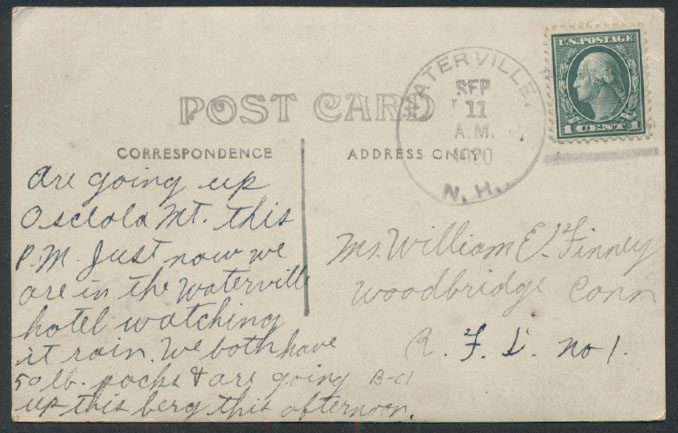 POST CARD
CORRESPONDENCE
ADDRESS ONLY
WATERVILLE.
SEP
11
A.M.
1920
N.H.
U.S. POSTAGE
1 CENT 1
are going up
Osceola Mt. this
P.M. Just now we
are in the Waterville
hotel watching
it rain. We both have
50 lb. packs & are going
up this berg this afternoon.
Mr. William E. Finney
Woodbridge Conn
R. F. D. No 1.
B-C1